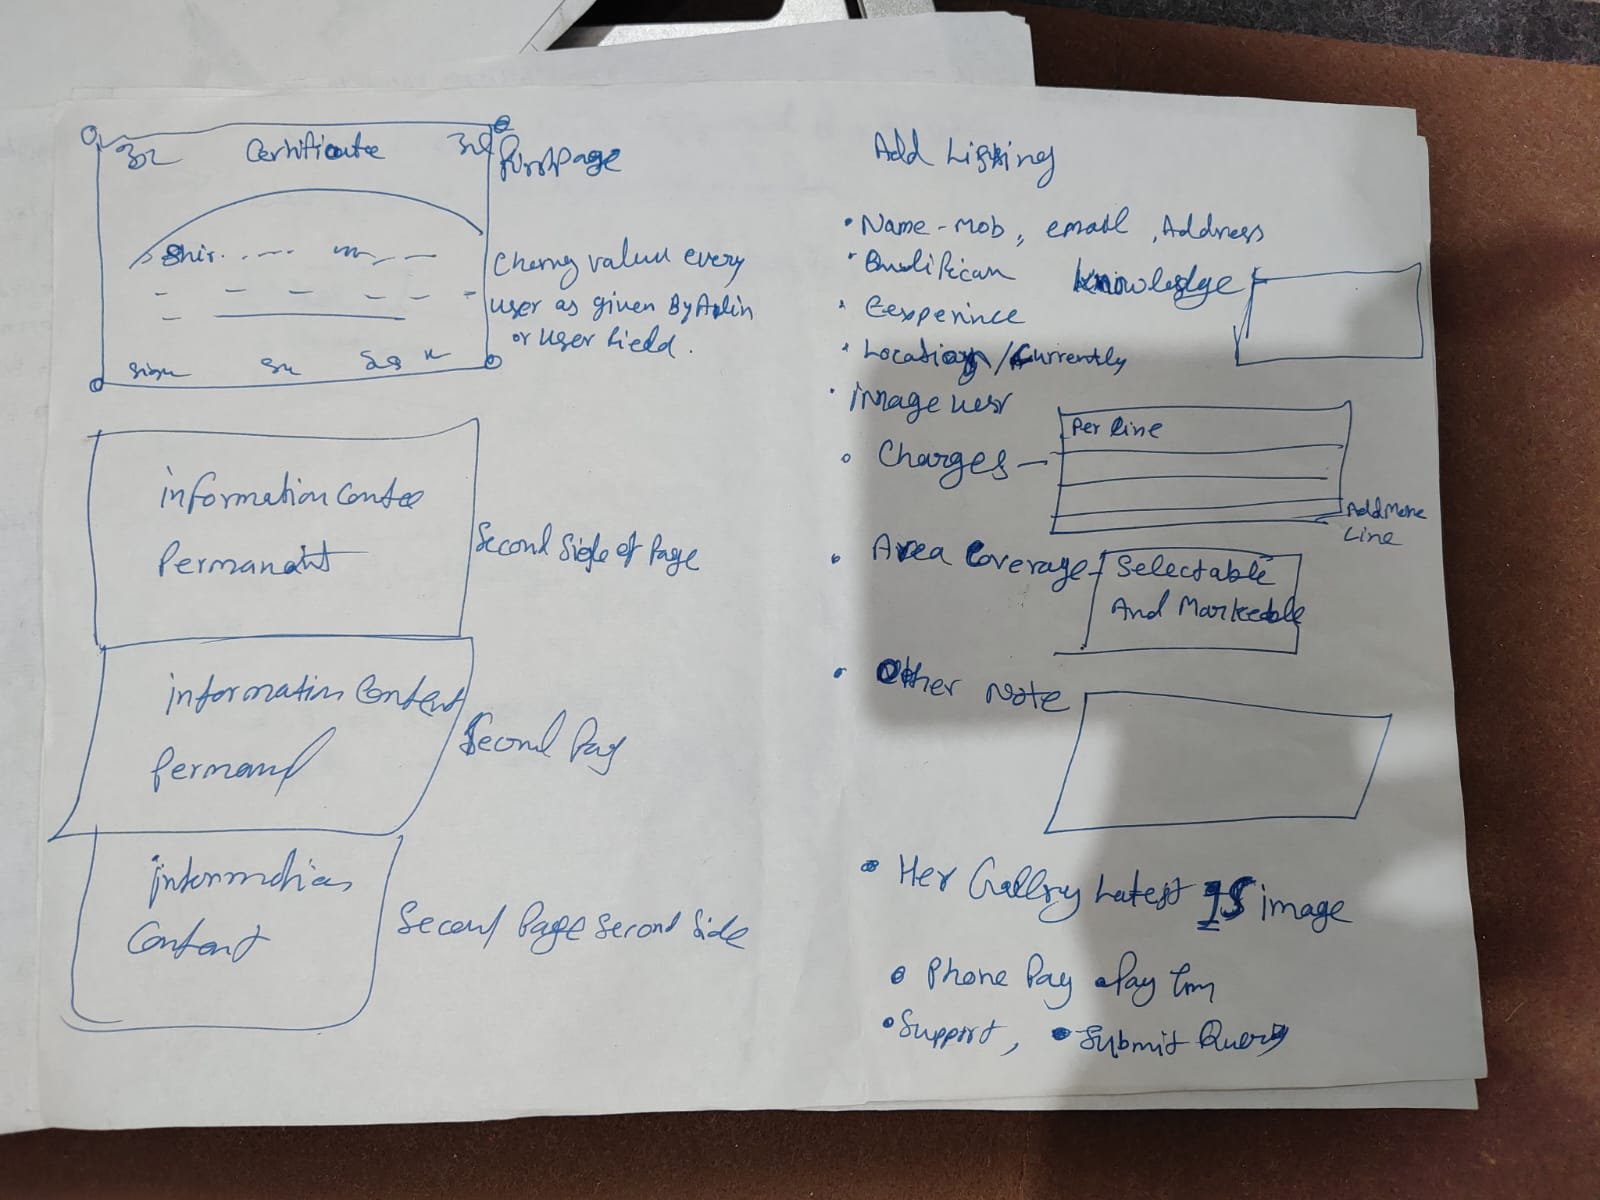 Certificate
First page
Shir
Chang value every
user as given By Admin
or user field.
sign
information Conte
Permanant
Second Side of Page
information Content
Perman

Second Pag
Information
Content
Second Page Second Side
Add Listing
• Name - Mob, email, Address
knowledge
• Eexperince
• Location / Currently
• image user
• Charges —
Per line
Add More
Line
• Area Coverage -
Selectable
And Markeable
• Other Note
• Her Gallry Latest 15 image
• Phone Pay • Pay tm
• Support, • Submit Query